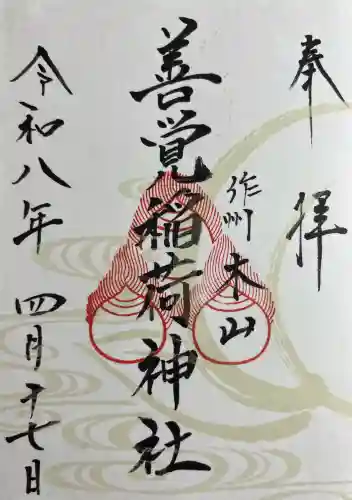 奉拝
作州 木山
善覚稲荷神社
令和八年 四月十七日